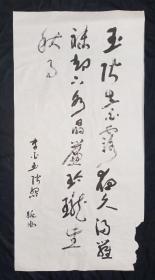 玉階生白露夜久侵羅
襪却下水晶簾玲瓏望
秋月
李白玉階怨